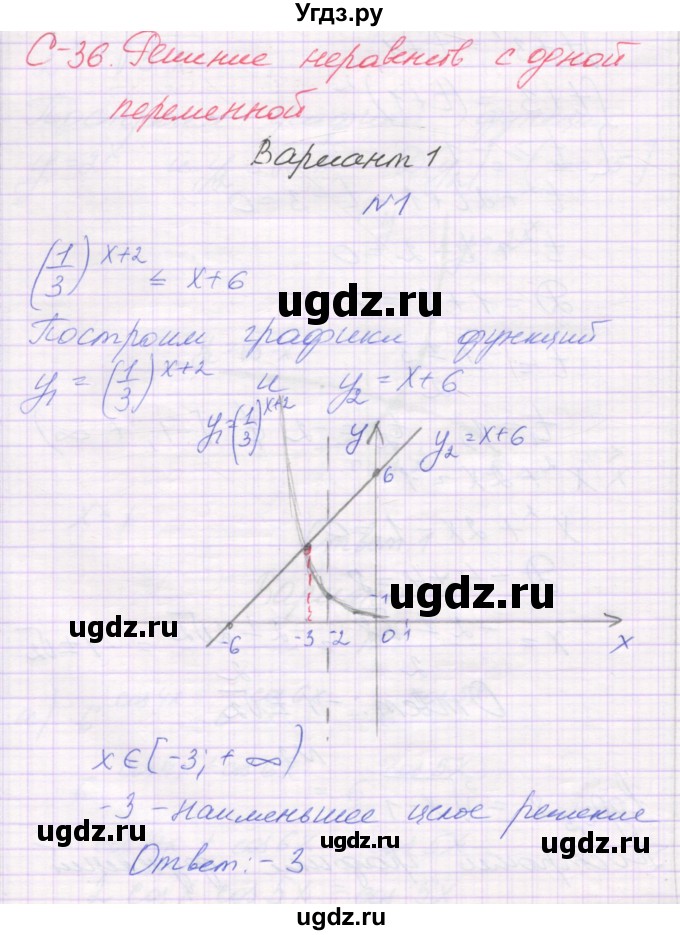 Угдз.ру
С-36. Решение неравенств с одной
переменной
Вариант 1
№1
(1/3)^(x+2) ≤ x+6
ugdz.ru
Построим графики функций
y₁ = (1/3)^(x+2) и y₂ = x+6
y₁=(1/3)^(x+2) y y₂=x+6
6
ugdz.ru
ugdz.ru
-1
ugdz.ru
-6 -3 -2 0 1 x
x∈[-3; +∞)
ugdz.ru
-3 - наименьшее целое решение
ugdz.ru
ugdz.ru
Ответ: -3
ugdz.ru